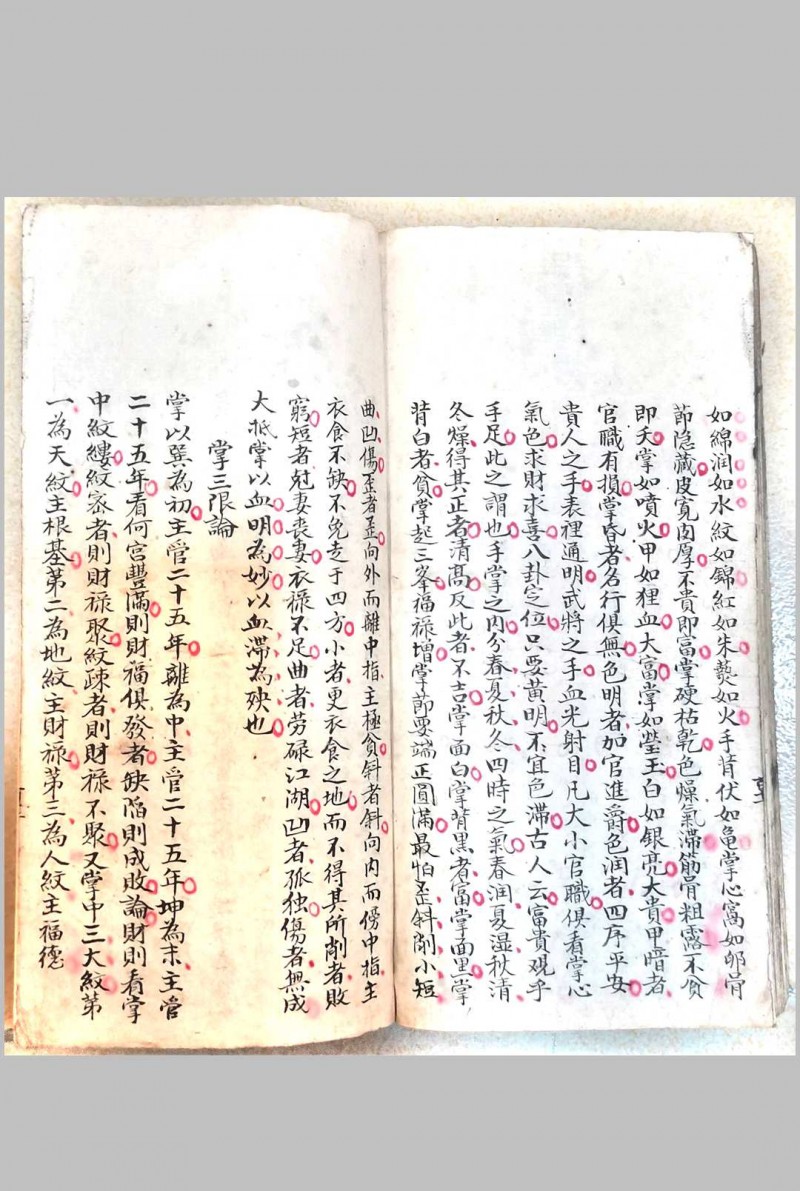 如綿潤如水紋如錦紅如朱藝如火手背伏如龟掌心窩如邜骨
節隐藏皮寛肉厚不貴即富掌硬枯乾色燥氣滯筋骨粗露不貧
即夭掌如噴火甲如狸血大富掌如瑩玉白如銀亮大貴甲暗者
官職有損掌昏者名行俱無色明者加官進爵色润者四序平安
貴人之手表裡通明武將之手血光射目凡大小官職俱看掌心
氣色求財求喜八卦定位只要黃明不宜色滯古人云富貴观乎
手足此之謂也手掌之内分春夏秋冬四時之氣春润夏湿秋清
冬燥得其正者清高反此者不吉掌面白掌背黑者富掌面黑掌
背白者貧掌起三峯福禄增掌節要端正圓滿最怕歪斜削小短
曲凹傷歪者歪向外而離中指主極貧斜者斜向内而傍中指主
衣食不缺不免走于四方小者更衣食之地而不得其所削者敗
窮短者尅妻喪妻衣禄不足曲者劳碌江湖凹者孤独傷者無成
大抵掌以血明為妙以血滯為殃也
掌三限論
掌以巽為初主管二十五年離為中主管二十五年坤為末主管
二十五年看何宮豐滿則財福俱發者缺陷則成敗論財則看掌
中紋縷紋密者則財禄聚紋疎者則財禄不聚又掌中三大紋第
一為天紋主根基第二為地紋主財禄第三為人紋主福德